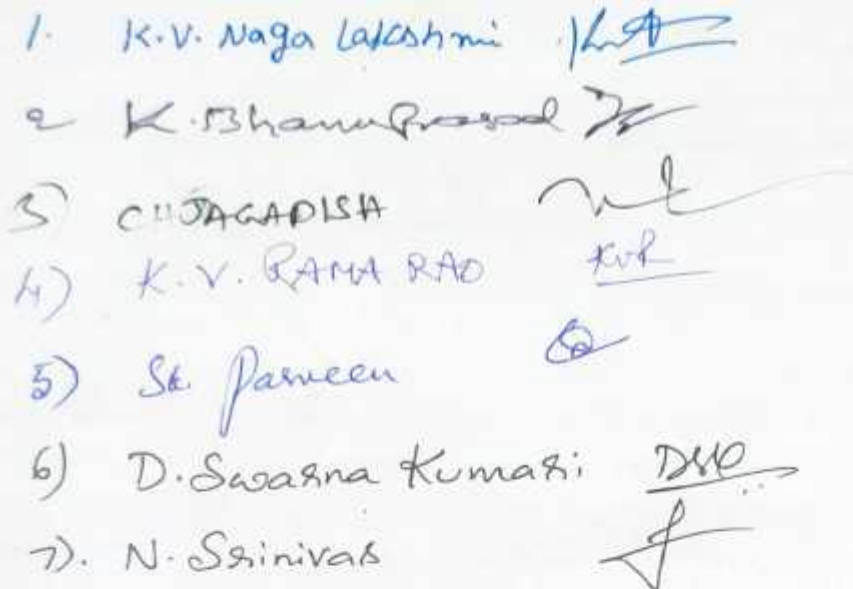 1. K.V. Naga Lakshmi
2 K. Bhanu Prasad
3) CH JAGADISH
4) K.V. RAMA RAO KVR
5) Sk. Parveen
6) D. Swarna Kumari DSK
7). N. Srinivas